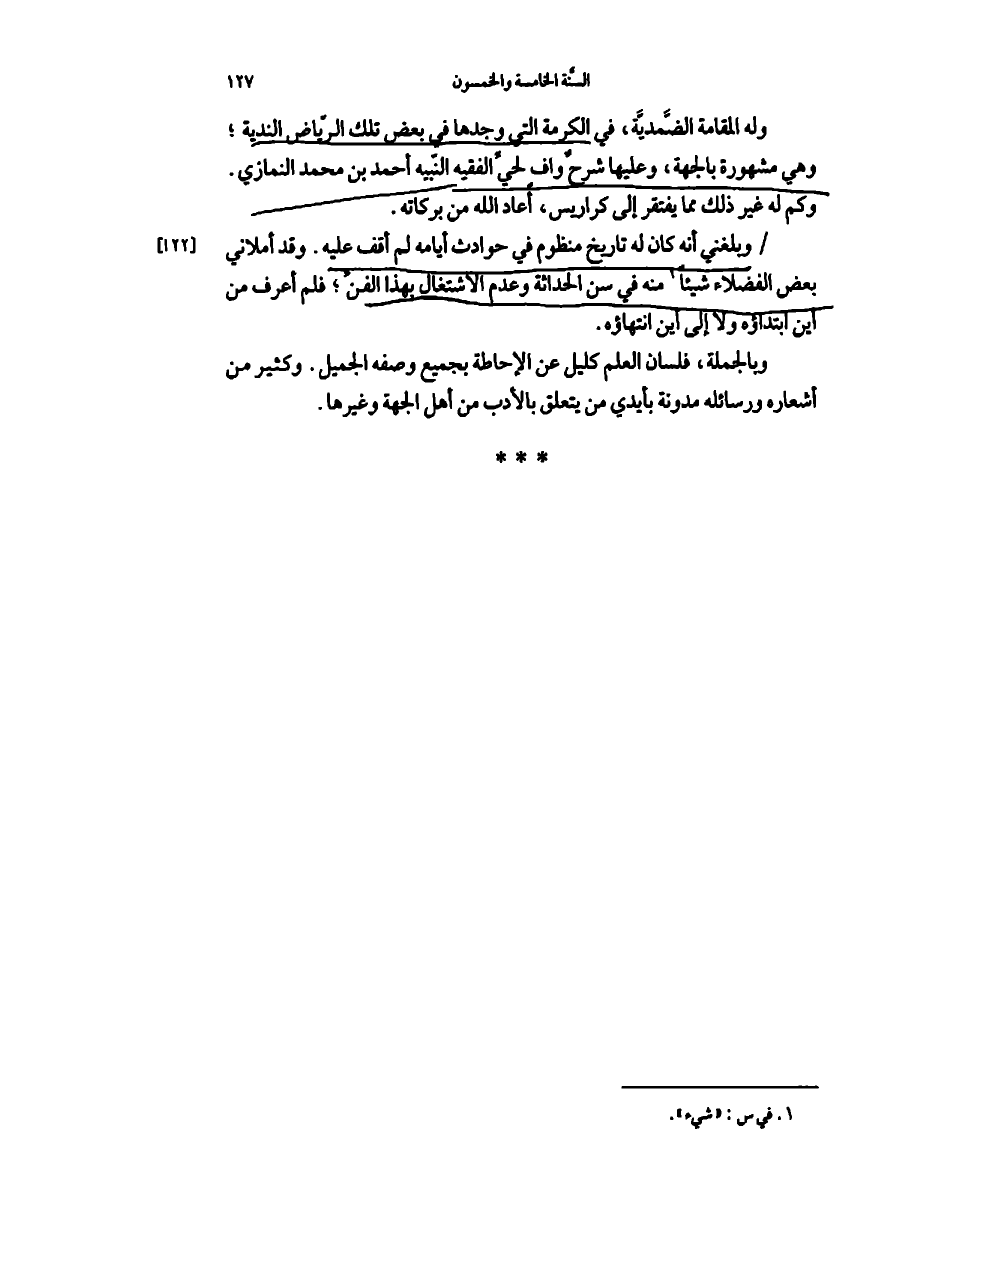 السنَّة الخامسة والخمسون ١٢٧
وله المقامة الضَّمديَّة، في الكرمة التي وجدها في بعض تلك الرّياض الندية ؛
وهي مشهورة بالجهة، وعليها شرحٌ واف لحيّ الفقيه النّبيه أحمد بن محمد النمازي.
وكم له غير ذلك مما يفتقر إلى كراريس، أعاد الله من بركاته.
/ وبلغني أنه كان له تاريخ منظوم في حوادث أيامه لم أقف عليه. وقد أملاني [١٢٢]
بعض الفضلاء شيئاً١ منه في سن الحداثة وعدم الأشتغال بهذا الفنّ ؛ فلم أعرف من
أين ابتداؤه ولا إلى أين انتهاؤه.
وبالجملة، فلسان العلم كليل عن الإحاطة بجميع وصفه الجميل. وكثير من
أشعاره ورسائله مدونة بأيدي من يتعلق بالأدب من أهل الجهة وغيرها.
* * *
١. في س : «شيء».